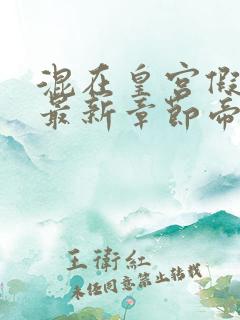 混在皇宫假
最新章节帝
王衛紅
未经同意禁止转载